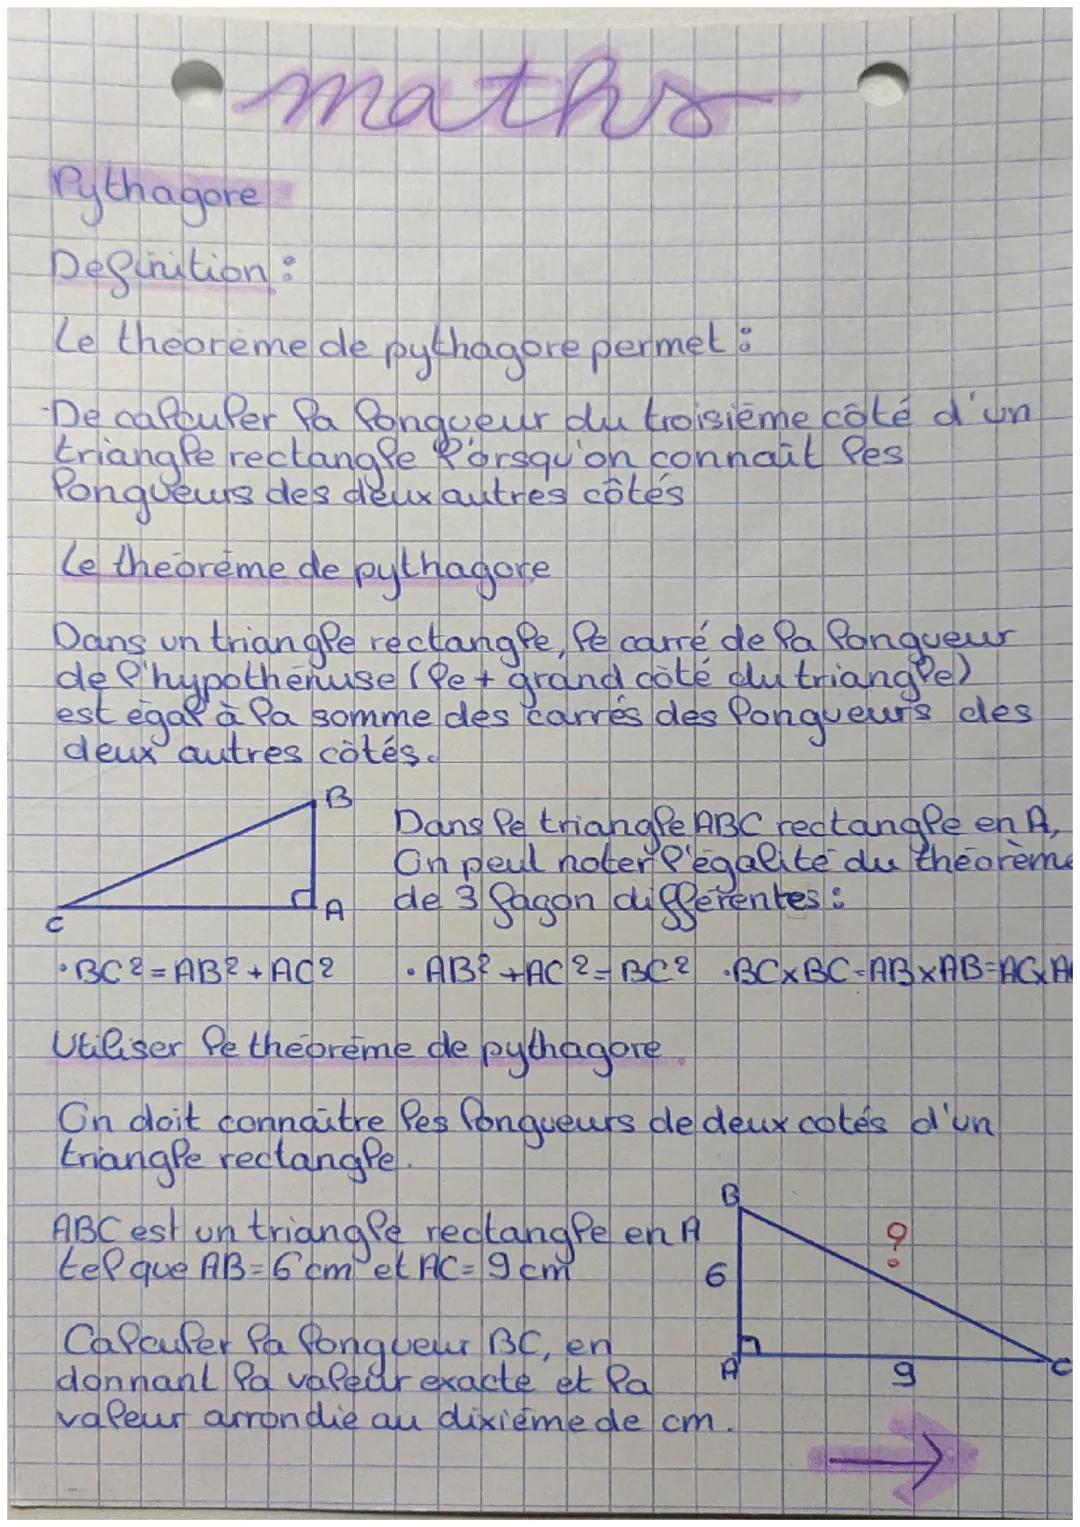 maths
Pythagore
Definition :
Le théorème de pythagore permet :
-De calculer la longueur du troisième côté d'un
triangle rectangle lorsqu'on connaît les
longueurs des deux autres côtés
Le théorème de pythagore
Dans un triangle rectangle, le carré de la longueur
de l'hypothénuse (le + grand côté du triangle)
est égal à la somme des carrés des longueurs des
deux autres côtés.
B
Dans le triangle ABC rectangle en A,
On peut noter l'égalité du théorème
de 3 façon différentes :
C
A
• BC² = AB² + AC² • AB² + AC² = BC² • BC×BC=AB×AB=AC×AC
Utiliser le théorème de pythagore.
On doit connaître les longueurs de deux cotés d'un
triangle rectangle.
B
ABC est un triangle rectangle en A
?
tel que AB=6 cm et AC=9 cm
6
Calculer la longueur BC, en
donnant la valeur exacte et la
A
9
C
valeur arrondie au dixième de cm.